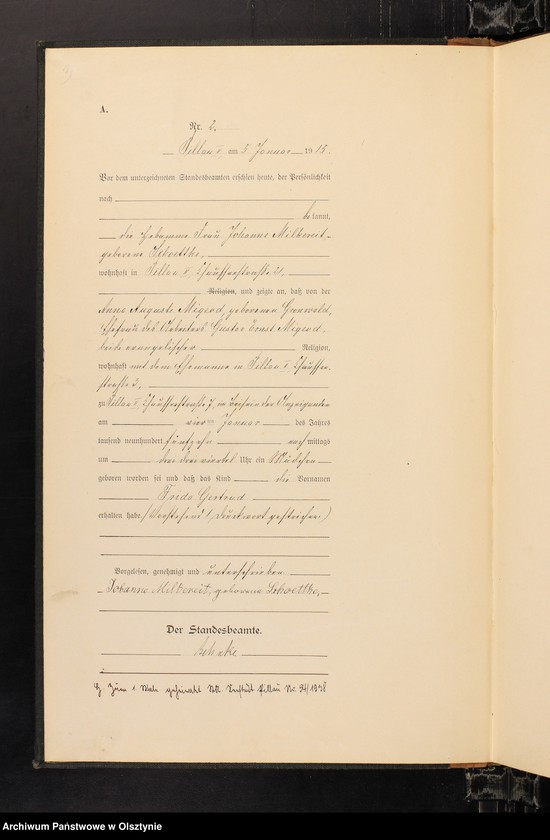 A.
Nr. 2.
Pillau II, am 5. Januar 1915.
Vor dem unterzeichneten Standesbeamten erschien heute, der Persönlichkeit
nach
bekannt,
die Hebamme Frau Johanne Milkereit,
geborene Schoettke,
wohnhaft in Pillau II, Chausseestraße 21,
Religion, und zeigte an, daß von der
Anna Auguste Migeod, geborenen Grunwald,
Ehefrau des Arbeiters Gustav Ernst Migeod,
beide evangelischer Religion,
wohnhaft mit dem Ehemanne in Pillau II, Chaussee-
straße 7,
zu Pillau II, Chausseestraße 7, im Beisein der Anzeigenden
am vier ten Januar des Jahres
tausend neunhundert fünfzehn nach mittags
um drei drei viertel Uhr ein Mädchen
geboren worden sei und daß das Kind die Vornamen
Frida Gertrud
erhalten habe. (Vorstehend 1 Druckwort gestrichen)
Vorgelesen, genehmigt und unterschrieben
Johanne Milkereit, geborene Schoettke,
Der Standesbeamte.
zum 1. Mal geheiratet StA. Pillau Nr.
Archiwum Państwowe w Olsztynie